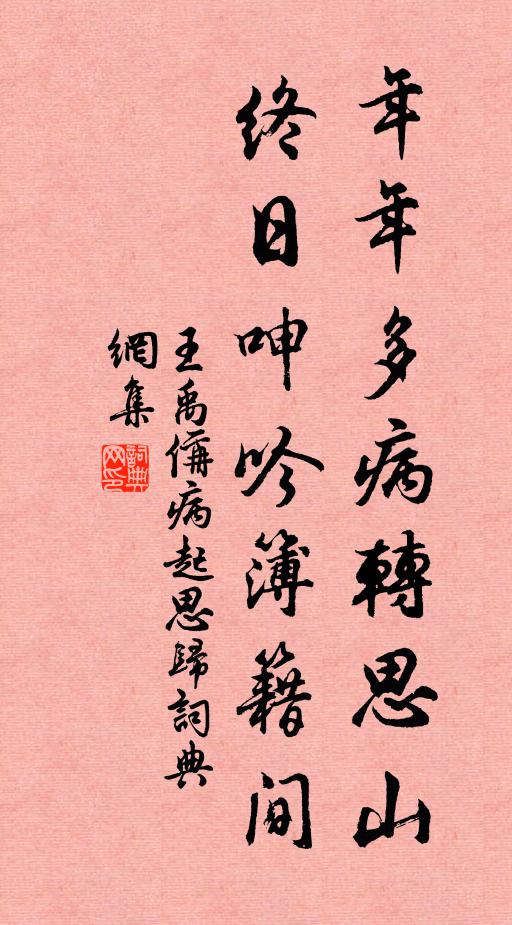 年年多病轉思山
終日呻吟簿籍间
王禹偁病起思歸詞典
網集
詞典
网印